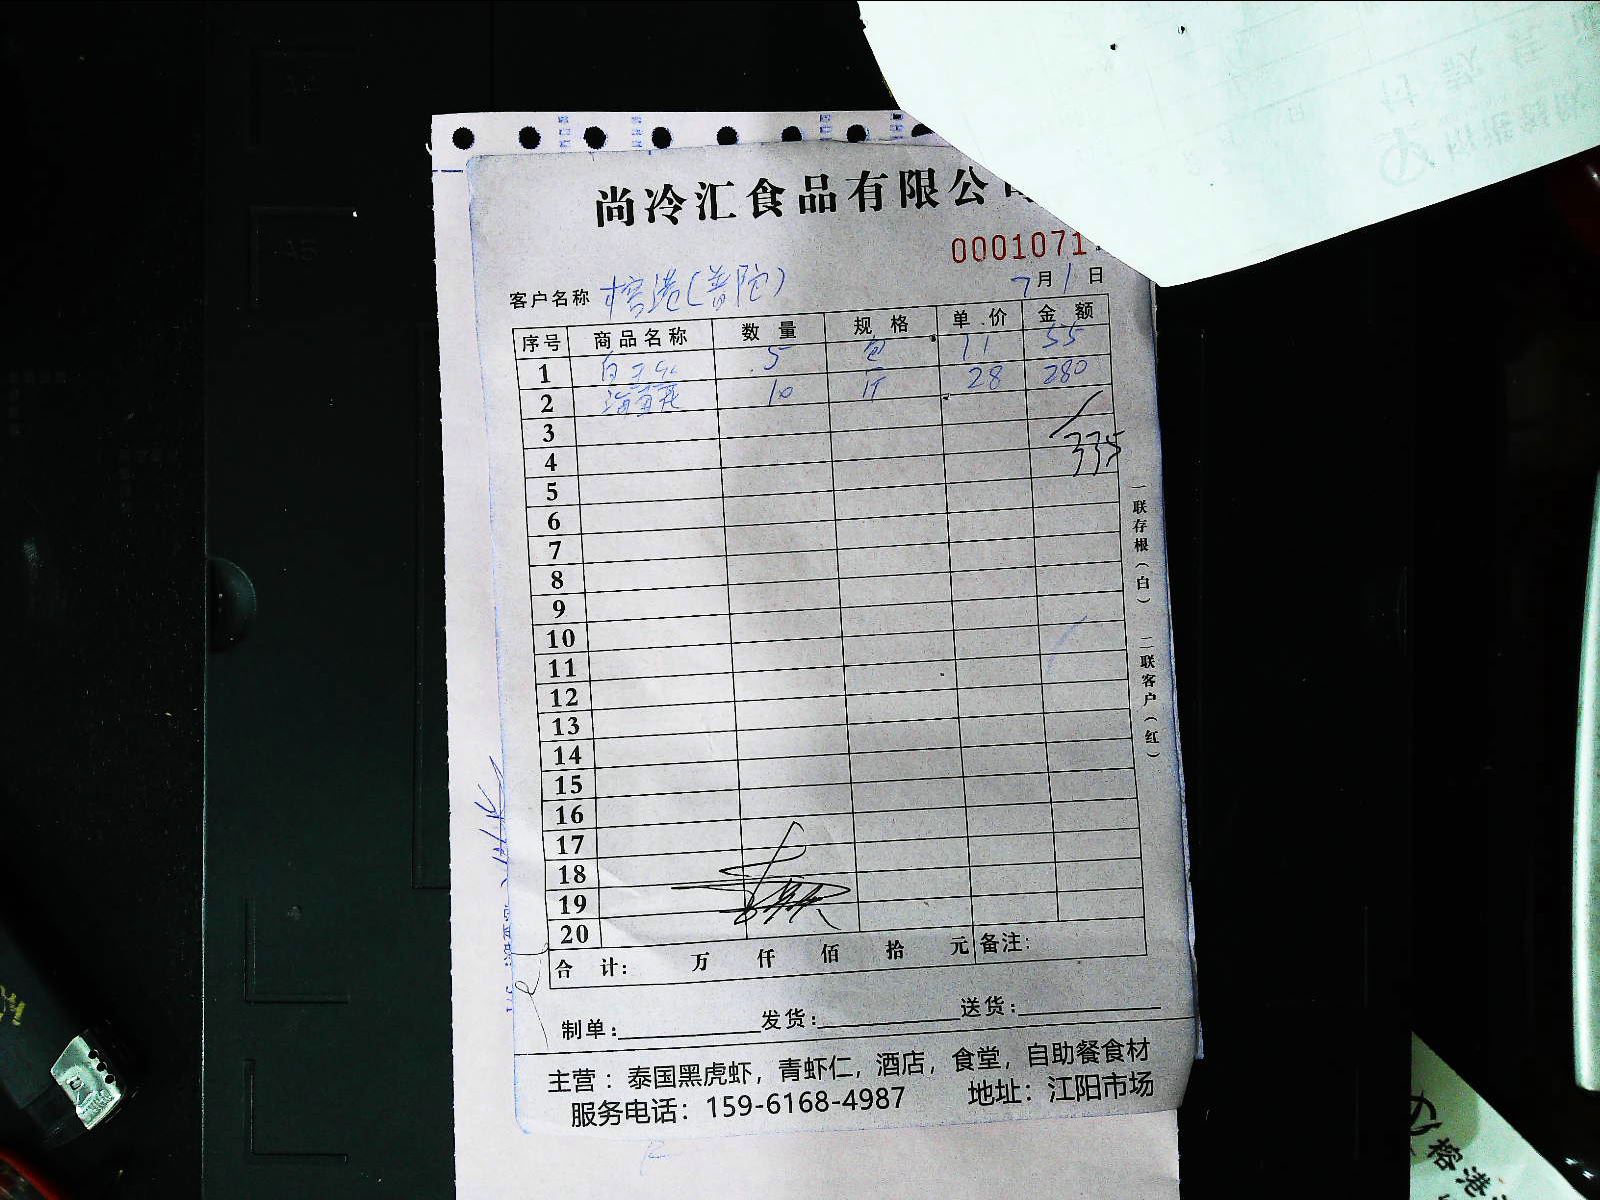 尚冷汇食品有限公司
0001071
客户名称 榕港(普陀) 7月1日
序号 商品名称 数量 规格 单价 金额
1 白玉 5 包 11 55
2 海 10 斤 28 280
3
4 335
5
6
7
8
9
10
11
12
13
14
15
16
17
18
19
20
合计: 万 仟 佰 拾 元 备注:
制单: 发货: 送货:
主营：泰国黑虎虾，青虾仁，酒店，食堂，自助餐食材
服务电话：159-6168-4987 地址：江阳市场
一联存根(白) 二联客户(红)
榕港